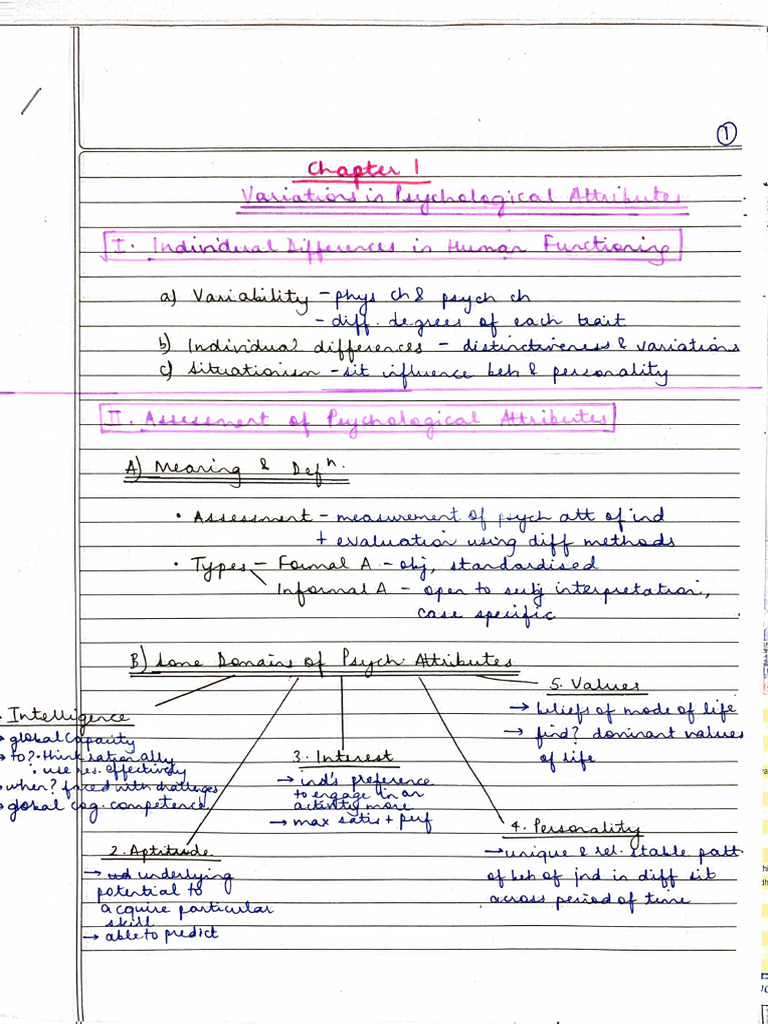 1
Chapter 1
Variations in Psychological Attributes
I. Individual Differences in Human Functioning
a) Variability - phys ch & psych ch
- diff. degrees of each trait
b) Individual differences - distinctiveness & variations
c) Situationism - sit influence beh & personality
II. Assessment of Psychological Attributes
A) Meaning & Defⁿ.
• Assessment - measurement of psych att of ind
+ evaluation using diff methods
• Types - Formal A - obj, standardised
Informal A - open to subj interpretation,
case specific
B) Some Domains of Psych. Attributes
Intelligence
→ global capacity
→ to? • think rationally
• use res. effectively
→ when? faced with challenges
→ global cog. competence
2. Aptitude
→ underlying
potential to
acquire particular
skill
→ able to predict
3. Interest
→ ind's preference
to engage in an
activity more
→ max satis + perf
4. Personality
→ unique & rel. stable patt.
of beh of ind in diff sit
across period of time
5. Values
→ beliefs of mode of life
→ find? dominant values
of life